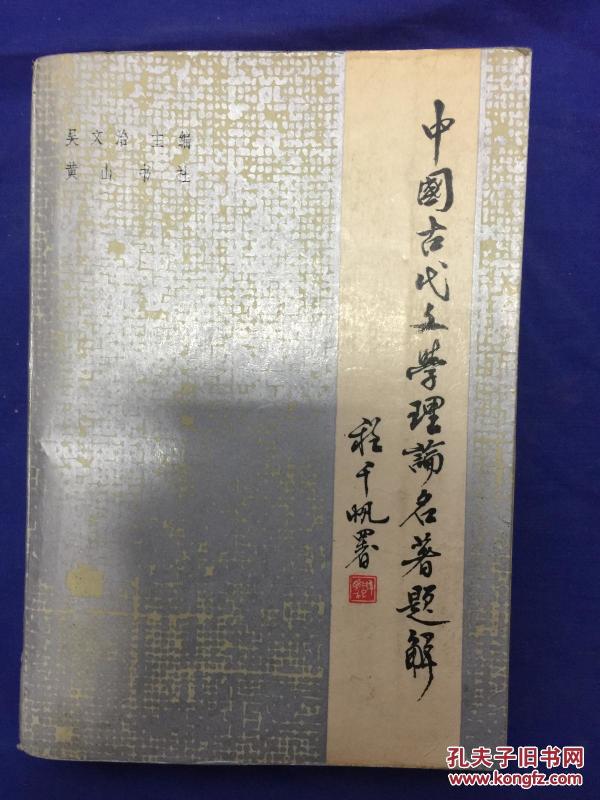 吴文治 主编
黄山书社
中國古代文學理論名著題解
程千帆署
孔夫子旧书网
www.kongfz.com